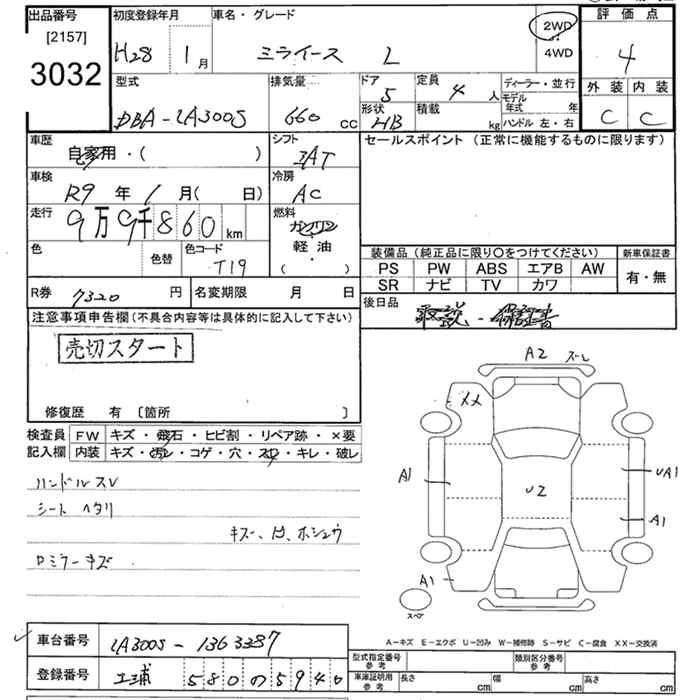 出品番号 初度登録年月 車名・グレード 2WD 評価点
[2157] H28 1月 ミライース L 4WD 4
3032 型式 排気量 ドア 定員 ディーラー・並行 外装 内装
DBA-LA300S 660 cc 5 4 人 モデル年式 年 C C
形状 HB 積載 kg ハンドル 左・右
車歴 自家用・( ) シフト セールスポイント (正常に機能するものに限ります)
車検 R9 年 1 月( 日) 冷房 AC
走行 9万9千860 km 燃料 ガソリン
軽油
( )
色 色替 色コード T19 装備品 (純正品に限り○をつけてください) 新車保証書
PS PW ABS エアB AW 有・無
SR ナビ TV カワ
R券 7320 円 名変期限 月 日 後日品 取説・保証書
注意事項申告欄(不具合内容等は具体的に記入して下さい)
売切スタート
修復歴 有 [箇所 ]
検査員 FW キズ・飛石・ヒビ割・リペア跡・×要
記入欄 内装 キズ・汚レ・コゲ・穴・スレ・キレ・破レ
ハンドルスレ
シート ヘタリ
キズ、凹、ホシュウ
ロミラーキズ
A2 ズレ
XX
A1 U2 UA1
A1
A1
スペア
A-キズ E-エクボ U-凹み W-補修跡 S-サビ C-腐食 XX-交換済
車台番号 LA300S-1363387
登録番号 土浦 580の5940
型式指定番号 参考 類別区分番号 参考
車庫証明用 参考 長さ cm 幅 cm 高さ cm